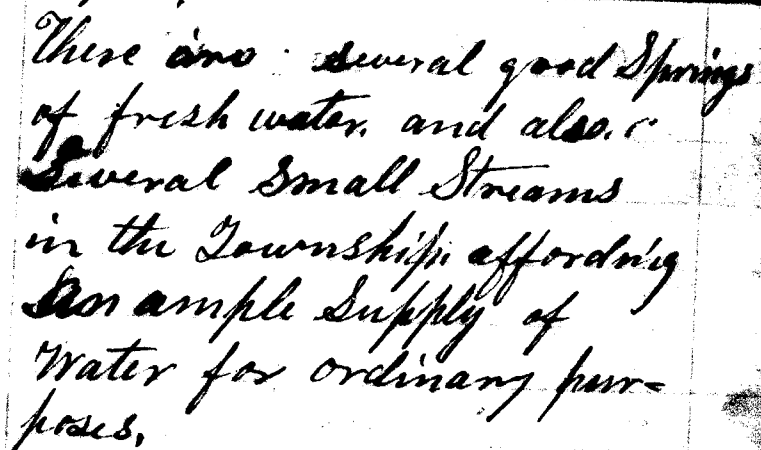 There are several good Springs
of fresh water. and also.
Several Small Streams
in the Township. affording
an ample Supply of
Water for ordinary pur=
poses.